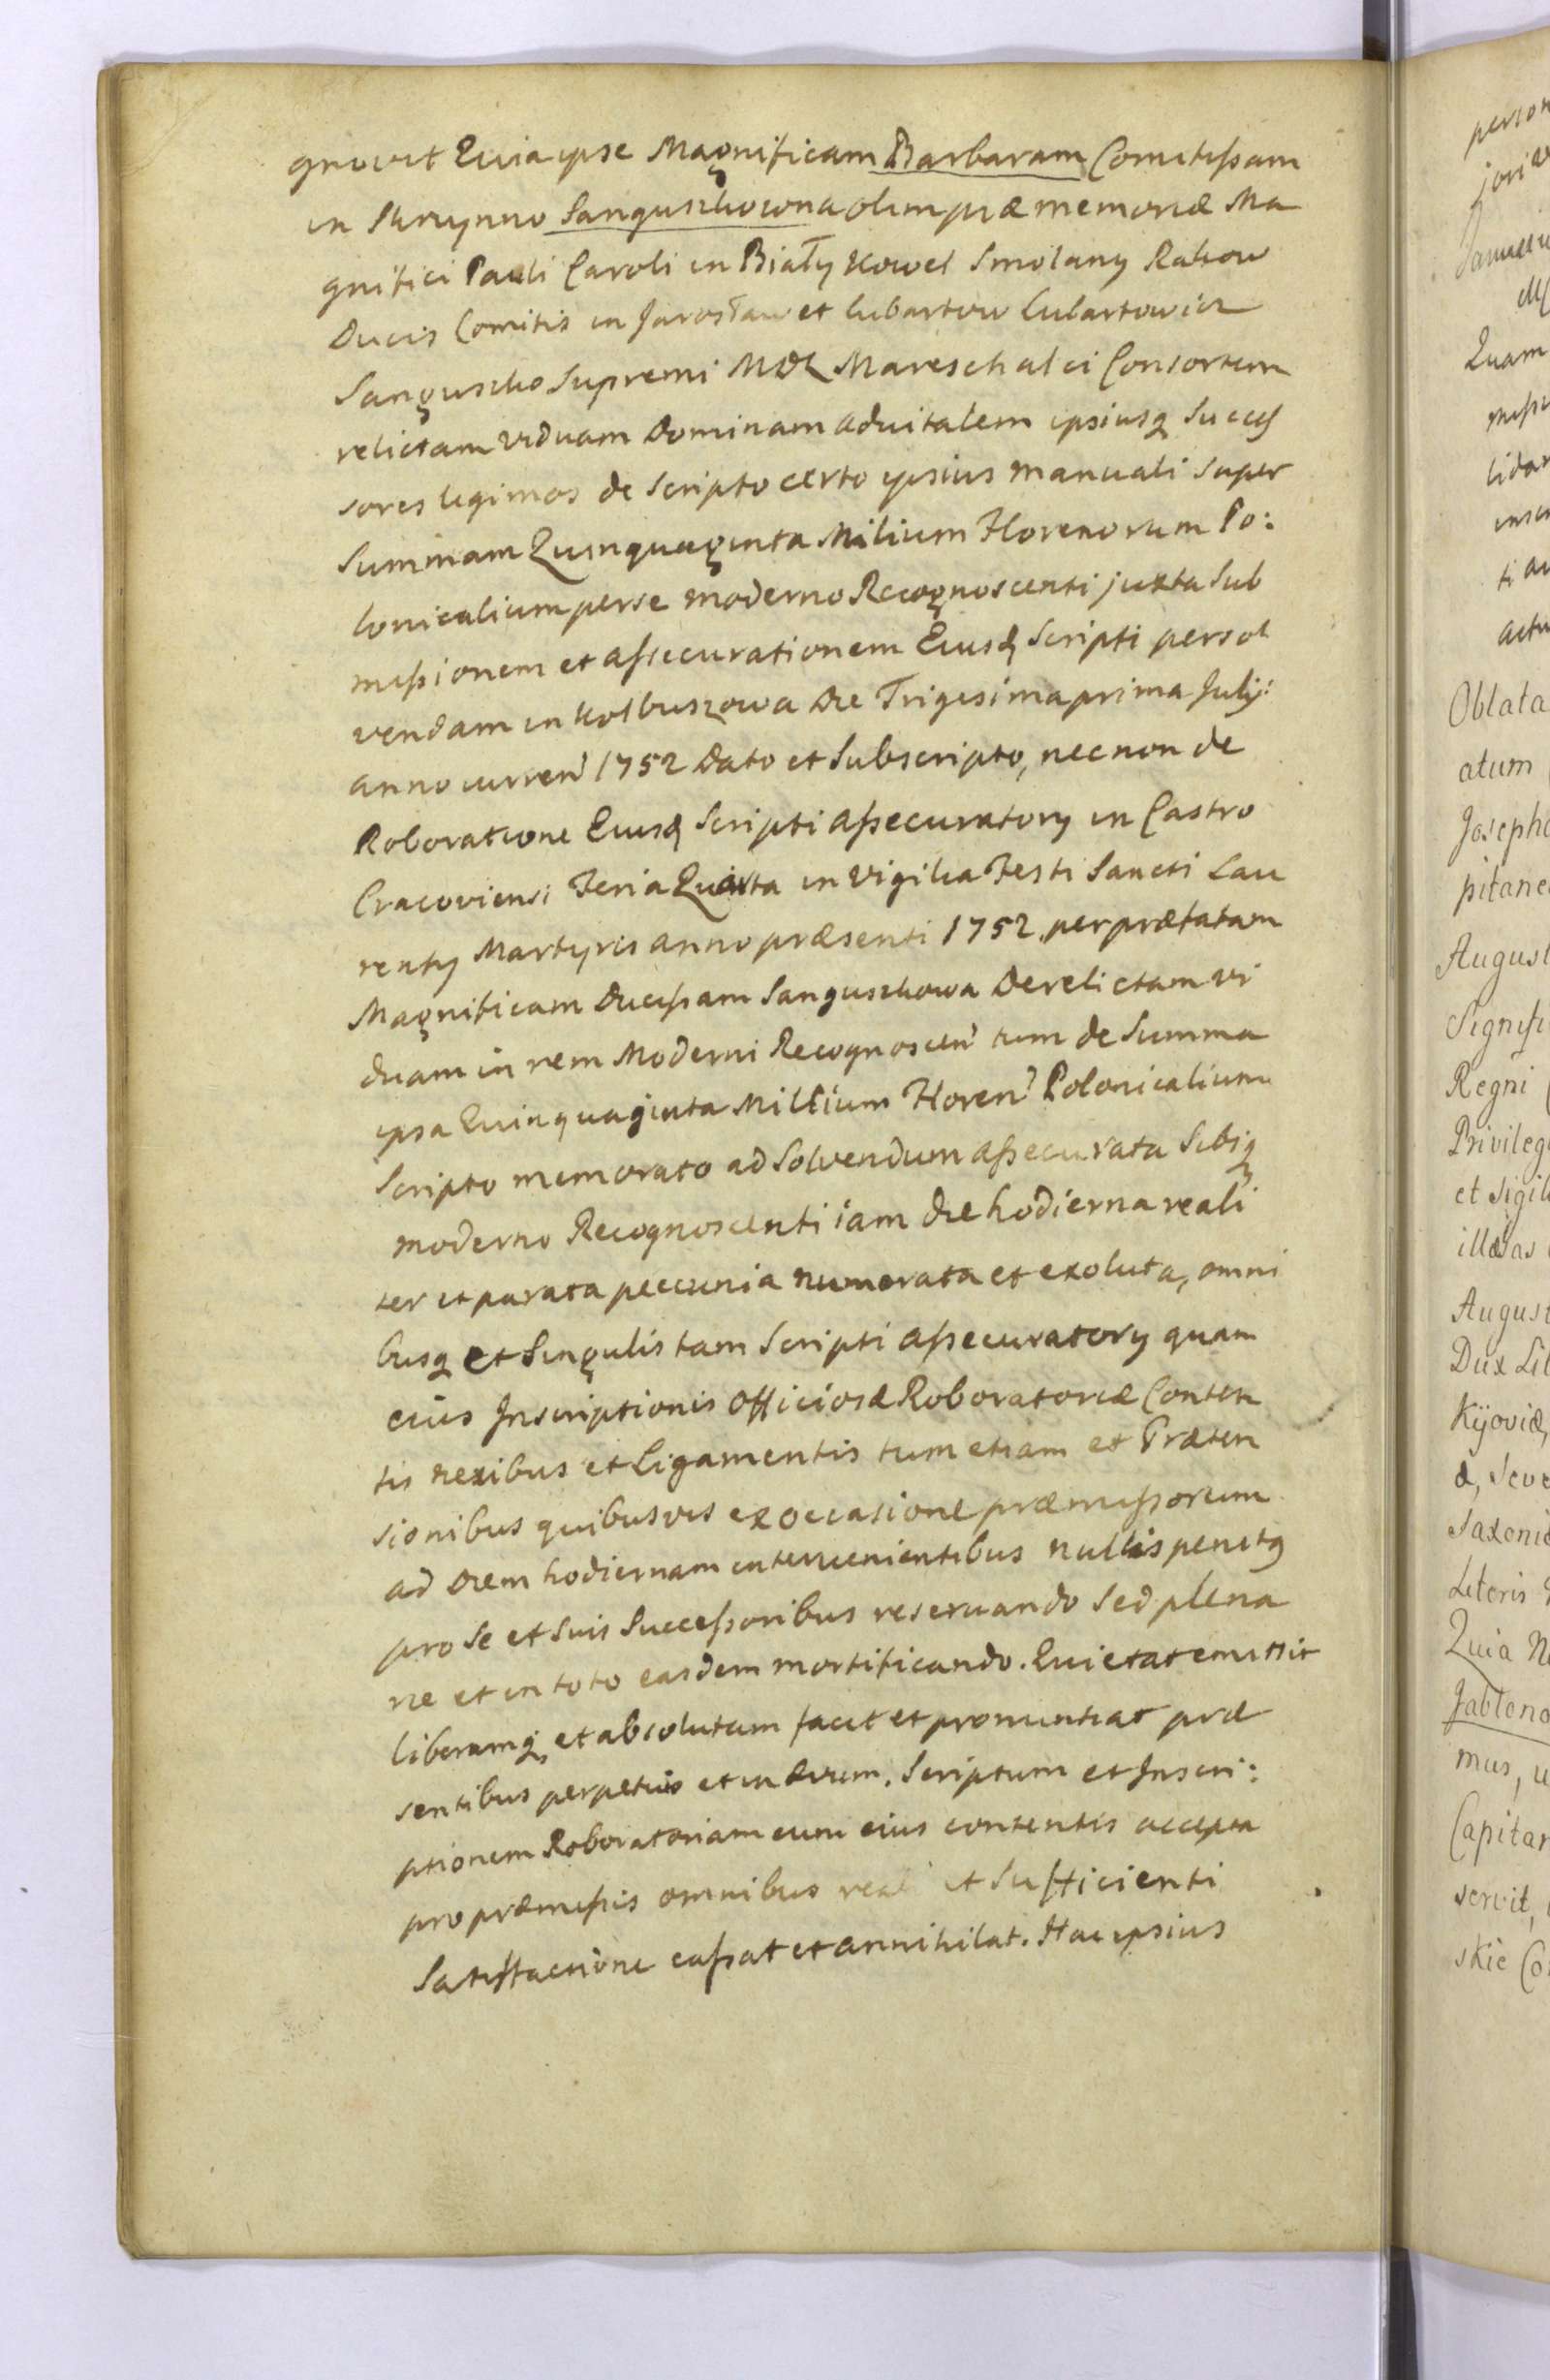 gnovit Quia ipse Magnificam Barbaram Comitissam
in Skrzynno Sanguszkowna olim piæ memoriæ Ma
gnifici Pauli Caroli in Biały Kowel Smolany Rakow
Ducis Comitis in Jarosław et Lubartow Lubartowicz
Sanguszko Supremi MDL Mareschalci Consortem
relictam viduam Dominam advitalem ipsiusq Succes
sores legimos de Scripto certo ipsius manuali super
Summam Quinquaginta Milium Florenorum Po:
lonicalium per se moderno Recognoscenti juxta Sub
missionem et assecurationem Eiusd Scripti persol
vendam in Kolbuszowa Die Trigesima prima Julij:
anno curren 1752 Dato et Subscripto, nec non de
Roboratione Eiusd Scripti assecuratory in Castro
Cracoviensi Feria Quarta in Vigilia Festi Sancti Lau
renty Martyris anno præsenti 1752 per præfatam
Magnificam Ducissam Sanguszkowa Derelictam vi
duam in rem Moderni Recognoscen tum de Summa
ipsa Quinquaginta Millium Floren Polonicalium
Scripto memorato ad Solvendum assecurata Sibiq
moderno Recognoscenti iam die hodierna reali
ter et parata peccunia numerata et exoluta, omni
busq et Singulis tam Scripti assecuratory quam
eius Inscriptionis officiosæ Roboratoriæ Conten
tis nexibus et Ligamentis tum etiam et Præten
sionibus quibusvis ex occasione præmissorum
ad Diem hodiernam intervenientibus nullis penitq
pro Se et Suis Successoribus reservando Sed plena
rie et in toto easdem mortificando. Quietat emittit
liberamq et absolutam facit et pronuntiat præ
sentibus perpetuis et in ævum. Scriptum et Inscri:
ptionem Roboratoriam cum eius contentis accepta
pro præmissis omnibus reali et Sufficienti
Satisfactione cassat et annihilat. Hac ipsius
person
Quam
lidar
Oblata
atum
Joseph
pitane
August
Regni
Privileg
et Sigil
illæsas
August
Dux Lit
Kijoviæ,
æ, Seve
Saxoniæ
Literis
Quia N
Jablono
mus, u
Capitan
servit,
skie Co